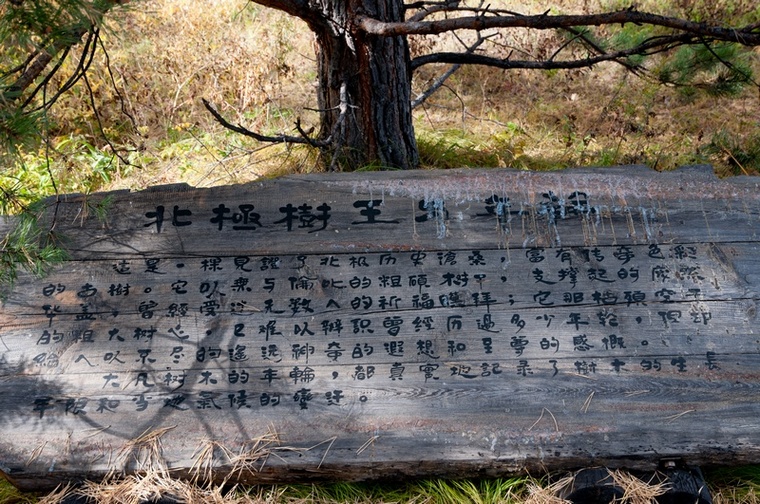 北極樹王
这是一棵見證了北极历史滄桑，富有传奇色彩
的古樹。它以无与倫比的粗硕樹干，支撑起的
华盖，曾經受过无数人的祈福膜拜；它那
的粗大树心，已难以辨識曾經历過多少年轮，但却
給人以不尽的遙远神奇的遐想和至尊的感慨。
大凡树木的年輪，都真實地記录了樹木的生長
年限和当地氣候的變迁。